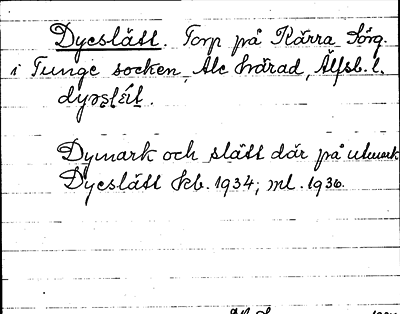 Dyeslätt. Torp på Kärra Sörg.
i Tunge socken, Ale härad, Älfsb. l.
dyəsle̩t.
Dymark och slätt där på utmark
Dyeslätt kb. 1934; ml. 1936.